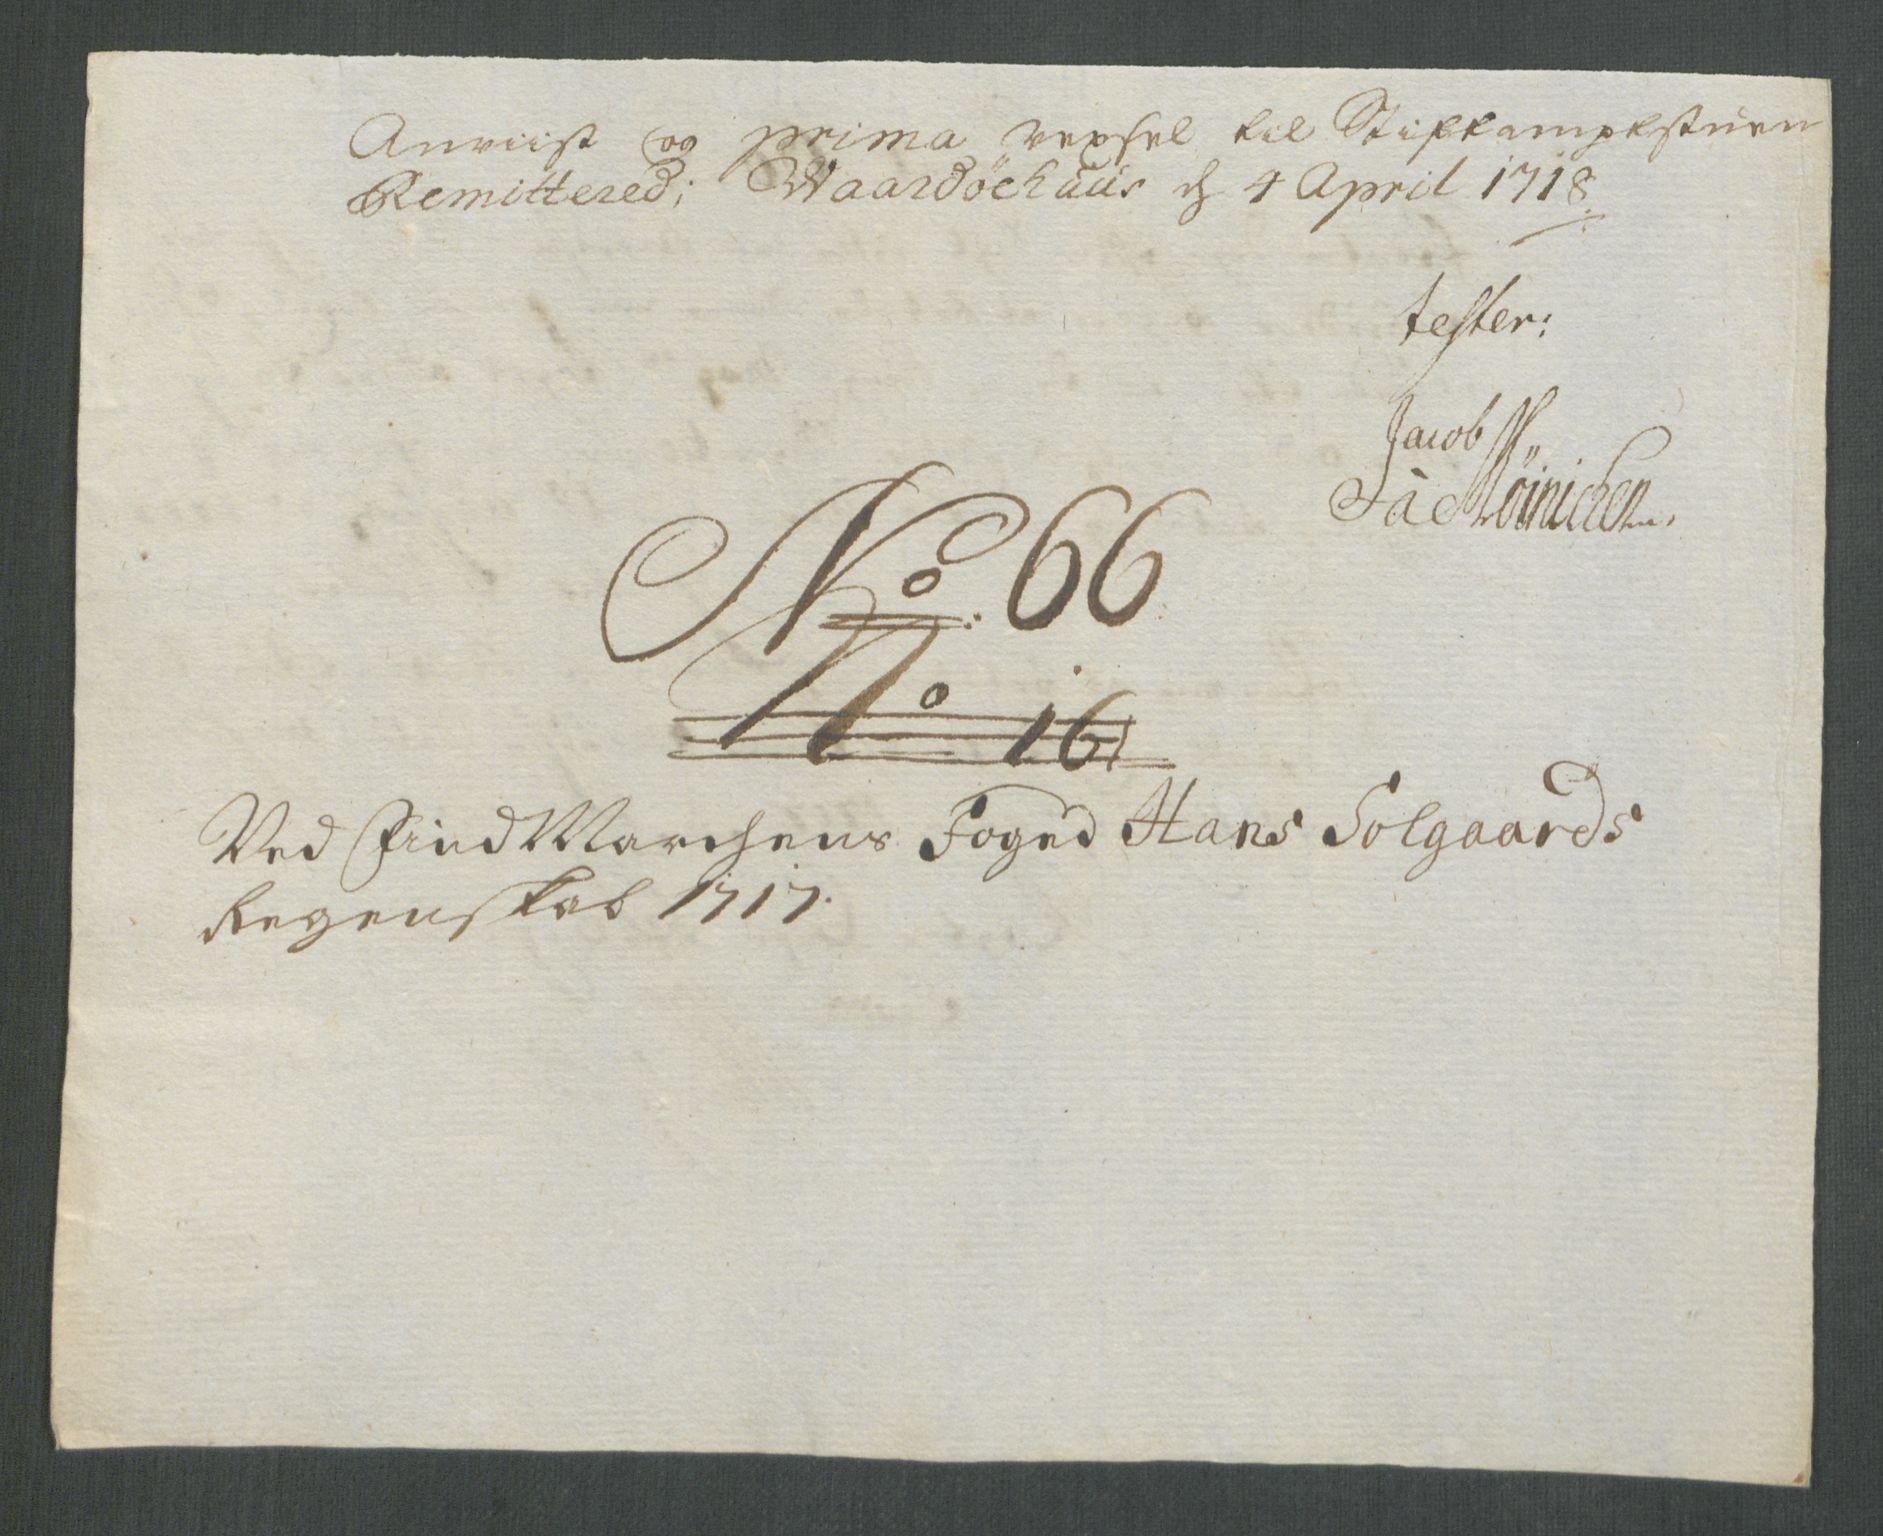 Anviist og prima vexsel til Stiftkampestuen
Remittered; Waardöehuus d 4 April 1718
tester:
Jacob
Möinichen
No: 66
No 16
Ved FindMarchens Foged Hans Solgaards
Regenskab 1717.